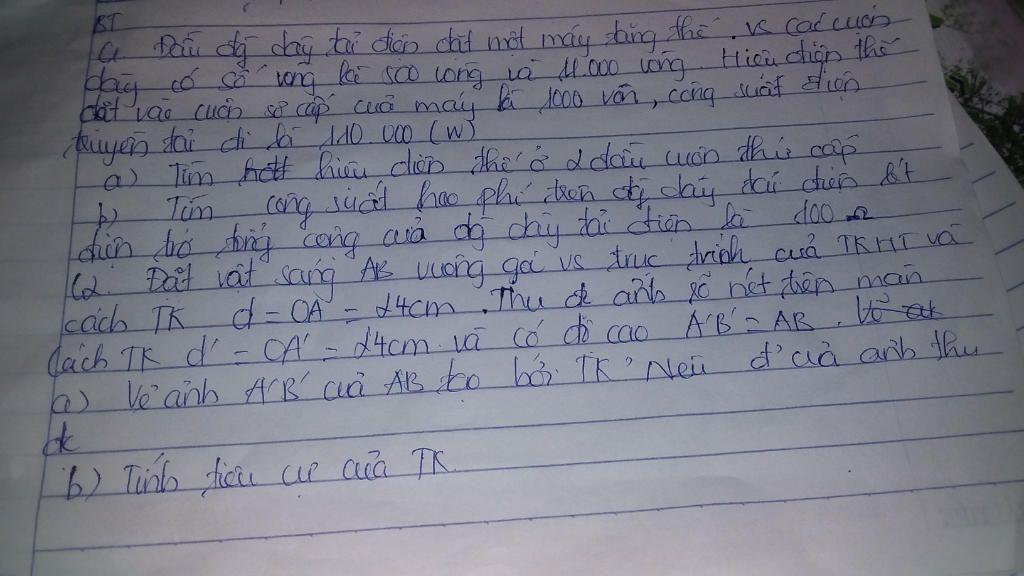 BT
C1 Đầu đg dây tải điện đặt một máy tăng thế. vs các cuộn
dây có số vòng là 500 vòng và 11.000 vòng. Hiệu điện thế
đặt vào cuộn sơ cấp của máy là 1000 vôn, công suất điện
truyền tải đi là 110.000 (W)
a) Tìm hiệu điện thế ở 2 đầu cuộn thứ cấp
b) Tìm công suất hao phí trên đg dây tải điện bt
điện trở tổng cộng của đg dây tải điện là 100 Ω
C2 Đặt vật sáng AB vuông góc vs trục trính của TKHT và
cách TK d = OA = 24cm. Thu đc ảnh rõ nét trên màn
cách TK d' = OA' = 24cm và có độ cao A'B' = AB.
a) Vẽ ảnh A'B' của AB tạo bởi TK. Nêu đ² của ảnh thu
đc
b) Tính tiêu cự của TK